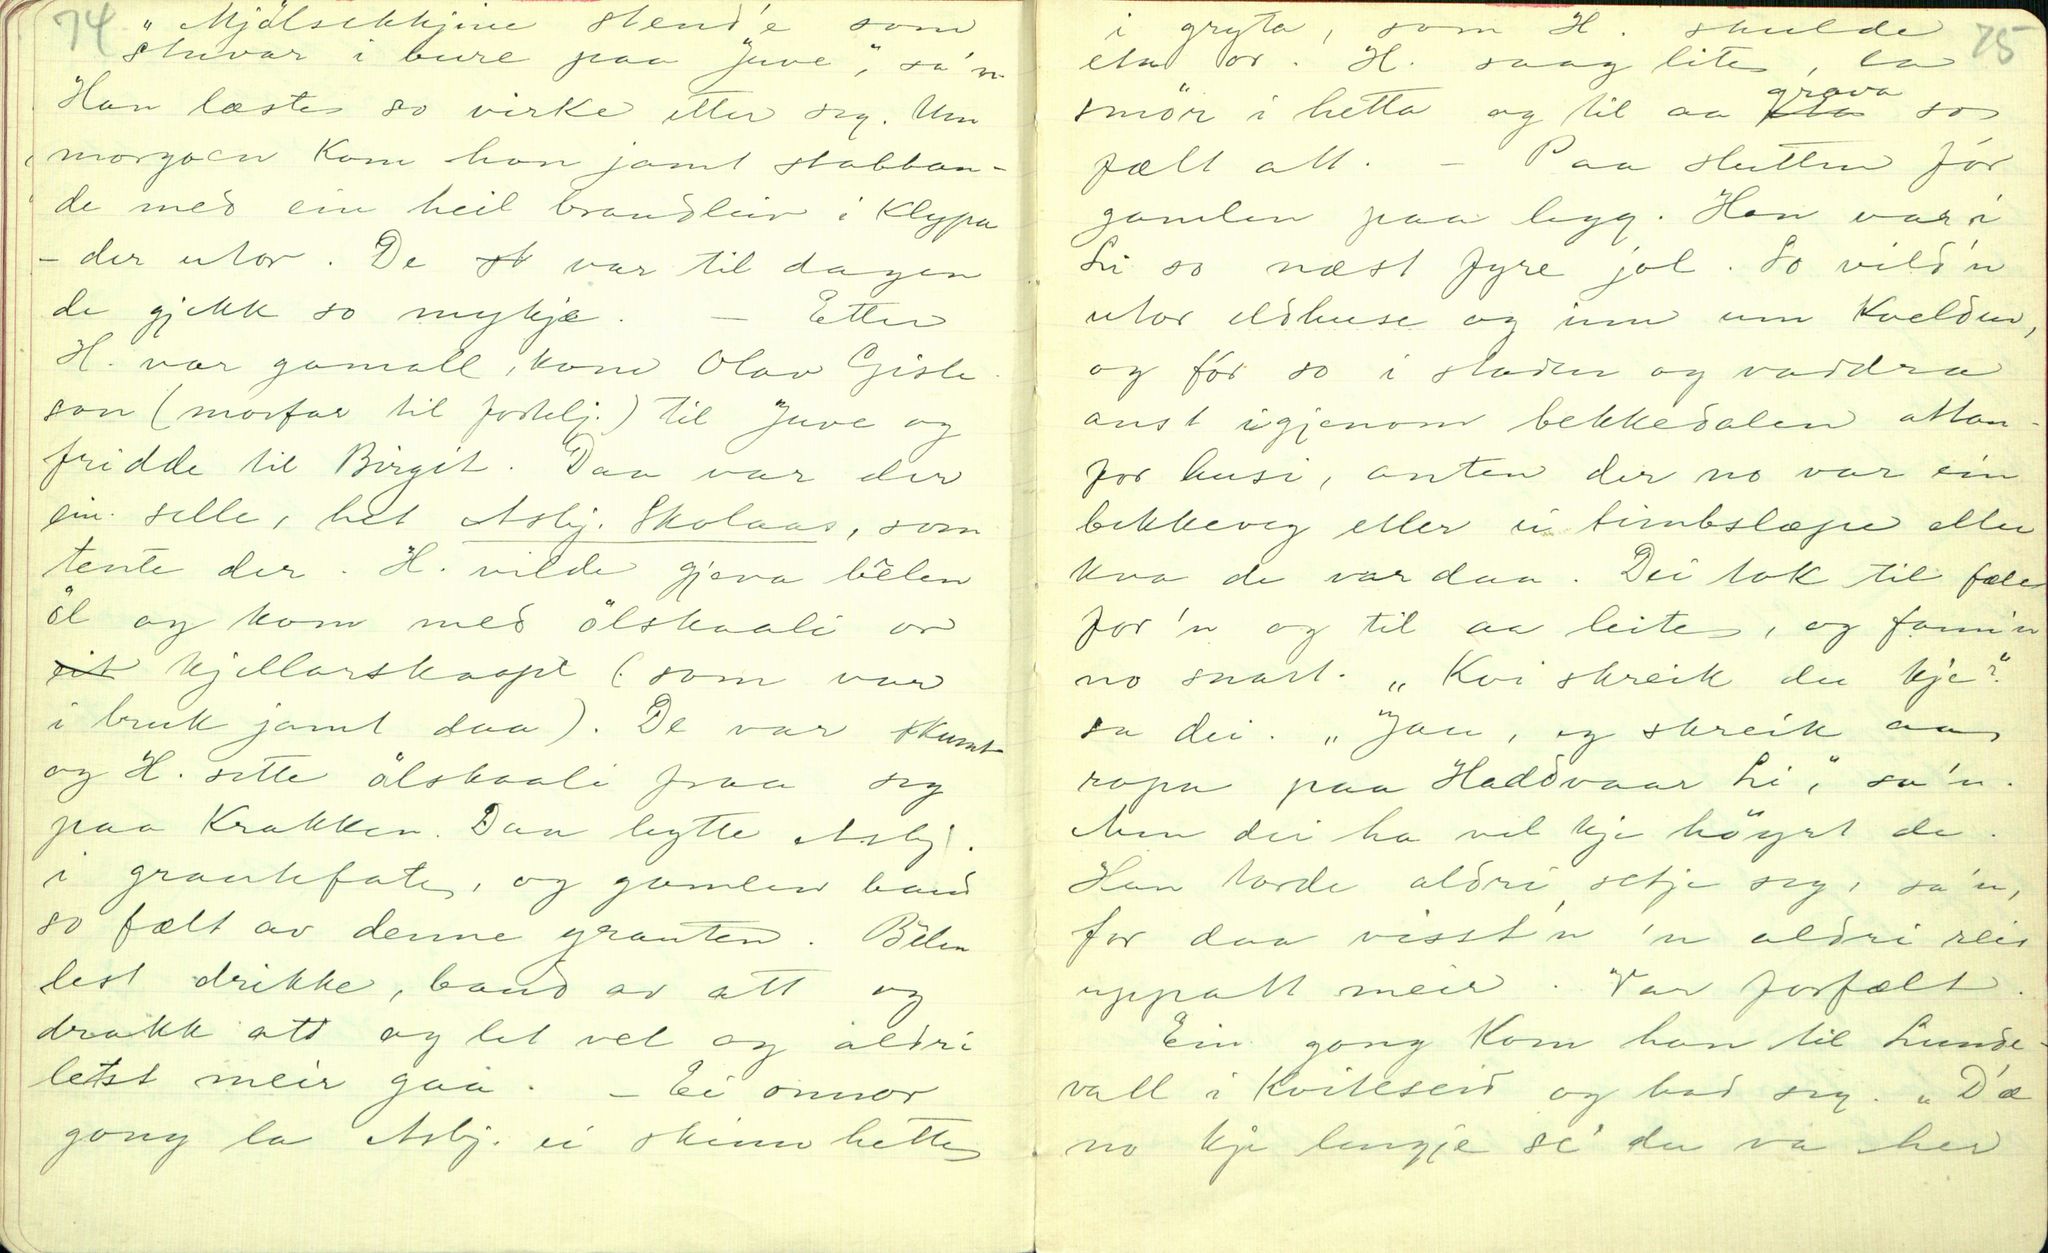 74
"Mjölsekkjine stend'e som
stuvar i bure paa Juve", sa'n
Han læste so virke etter seg. Um
morgoen kom han jamt stabban-
de med ein heil brandleiv i klypa
- der utor. De st var til dagen
de gjekk so mykje. - Etter
H. var gamall, kom Olav Gisle-
son (morfar til fortelj.) til Juve og
fridde til Birgit. Daa var der
ein selle, het Asbj. Skolaas, som
tente der. H. vilde gjeva bèlen
öl og kom med ölskaali or
eit kjellarskaape (som var
i bruk jamt daa). De var skumt
og H. sette ölskaali fraa seg
paa krakken. Daa bytte Asbj.
i grautfate, og gamlen baud
so fælt av denne grauten. Bèlen
lest drikke, baud av att og
drakk att og let vel og aldri
letst meir gaa. - Ei onnor
gong la Asbj. ei skinnhette
75
i gryta, som H. skulde
eta or. H. saag lite, la
smör i hetta og til aa grava so
fælt att. - Paa slutten fór
gamlen paa legg. Han var i
Li so næst fyre jol. So vild'n
utor eldhuse og inn um kvelden,
og fór so i staden og vaddra
aust igjenom bekkedalen attan-
for husi, anten der no var ein
bekkeveg eller ei timbslæpe eller
kva de var daa. Dei tok til fæle
for'n og til aa leite, og fann'n
no snart. "Kvi skreik du kje?"
sa dei. "Jau, eg skreik aa
ropa paa Haddvaar Li", sa'n.
Men dei ha vel kje höyrt de.
Han torde aldri setje seg, sa'n,
for daa visst'n 'n aldri reis
uppatt meir. Var forfælt.
Ein gong kom han til Lunde-
vall i Kviteseid og bad seg. "D'æ
no kje lengje se' du va her